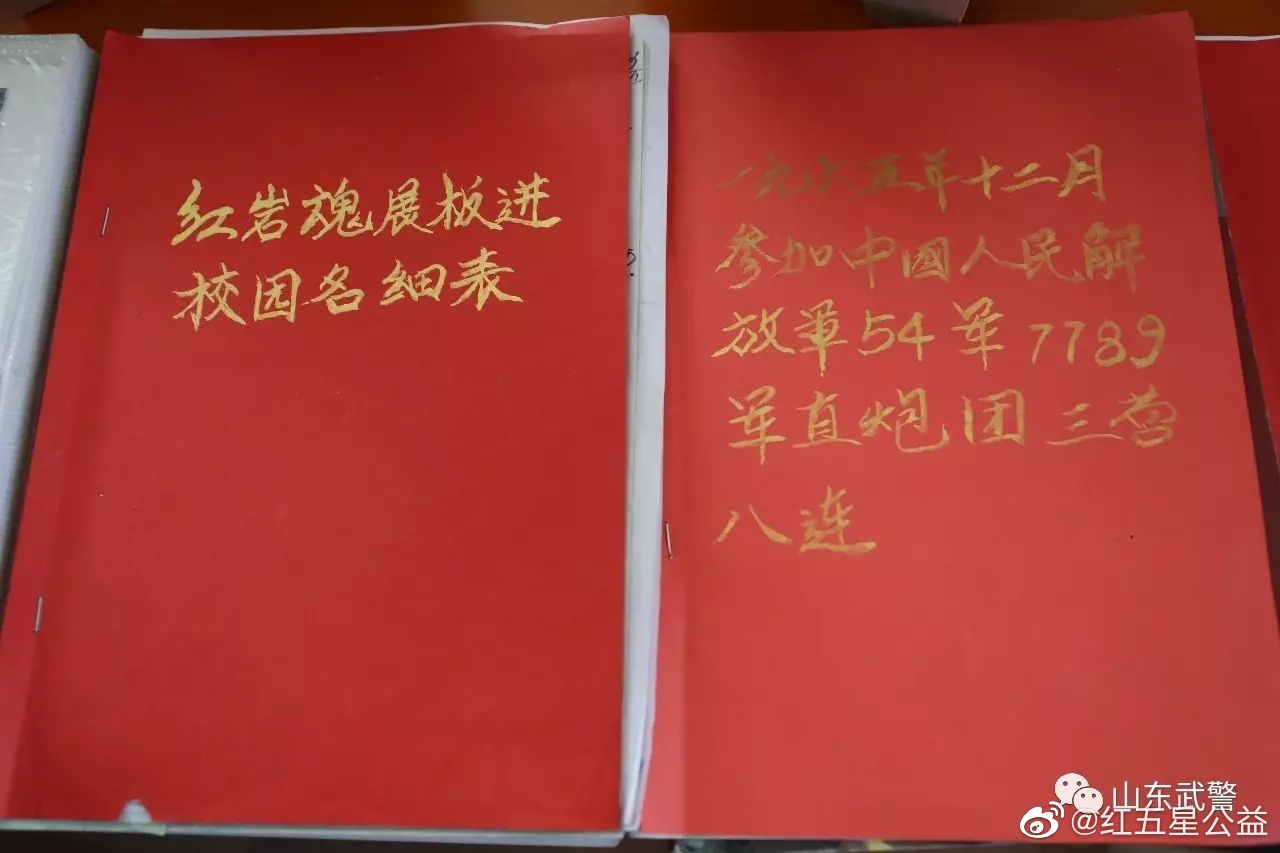 红岩魂展板进
校园名细表
一九六五年十二月
参加中國人民解
放军54军7789
军直炮团三营
八连
山东武警
@红五星公益